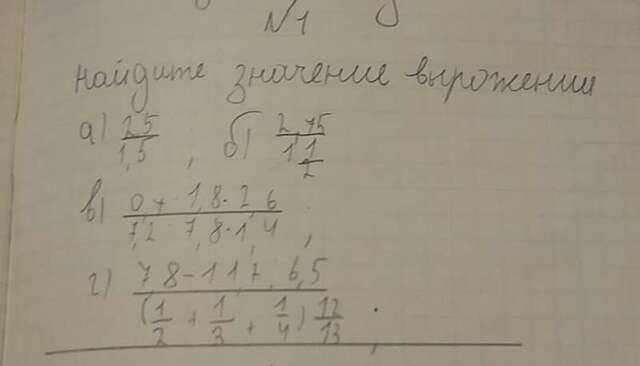 №1
найдите значение выражения
а) 2,5/1,5 ; б) 2,75/1 1/2
в) 0,7 · 1,8 · 2,6/7,2 · 7,8 · 1,4 ,
г) 7,8 - 11,7 · 6,5/(1/2 + 1/3 + 1/4) 12/13 .